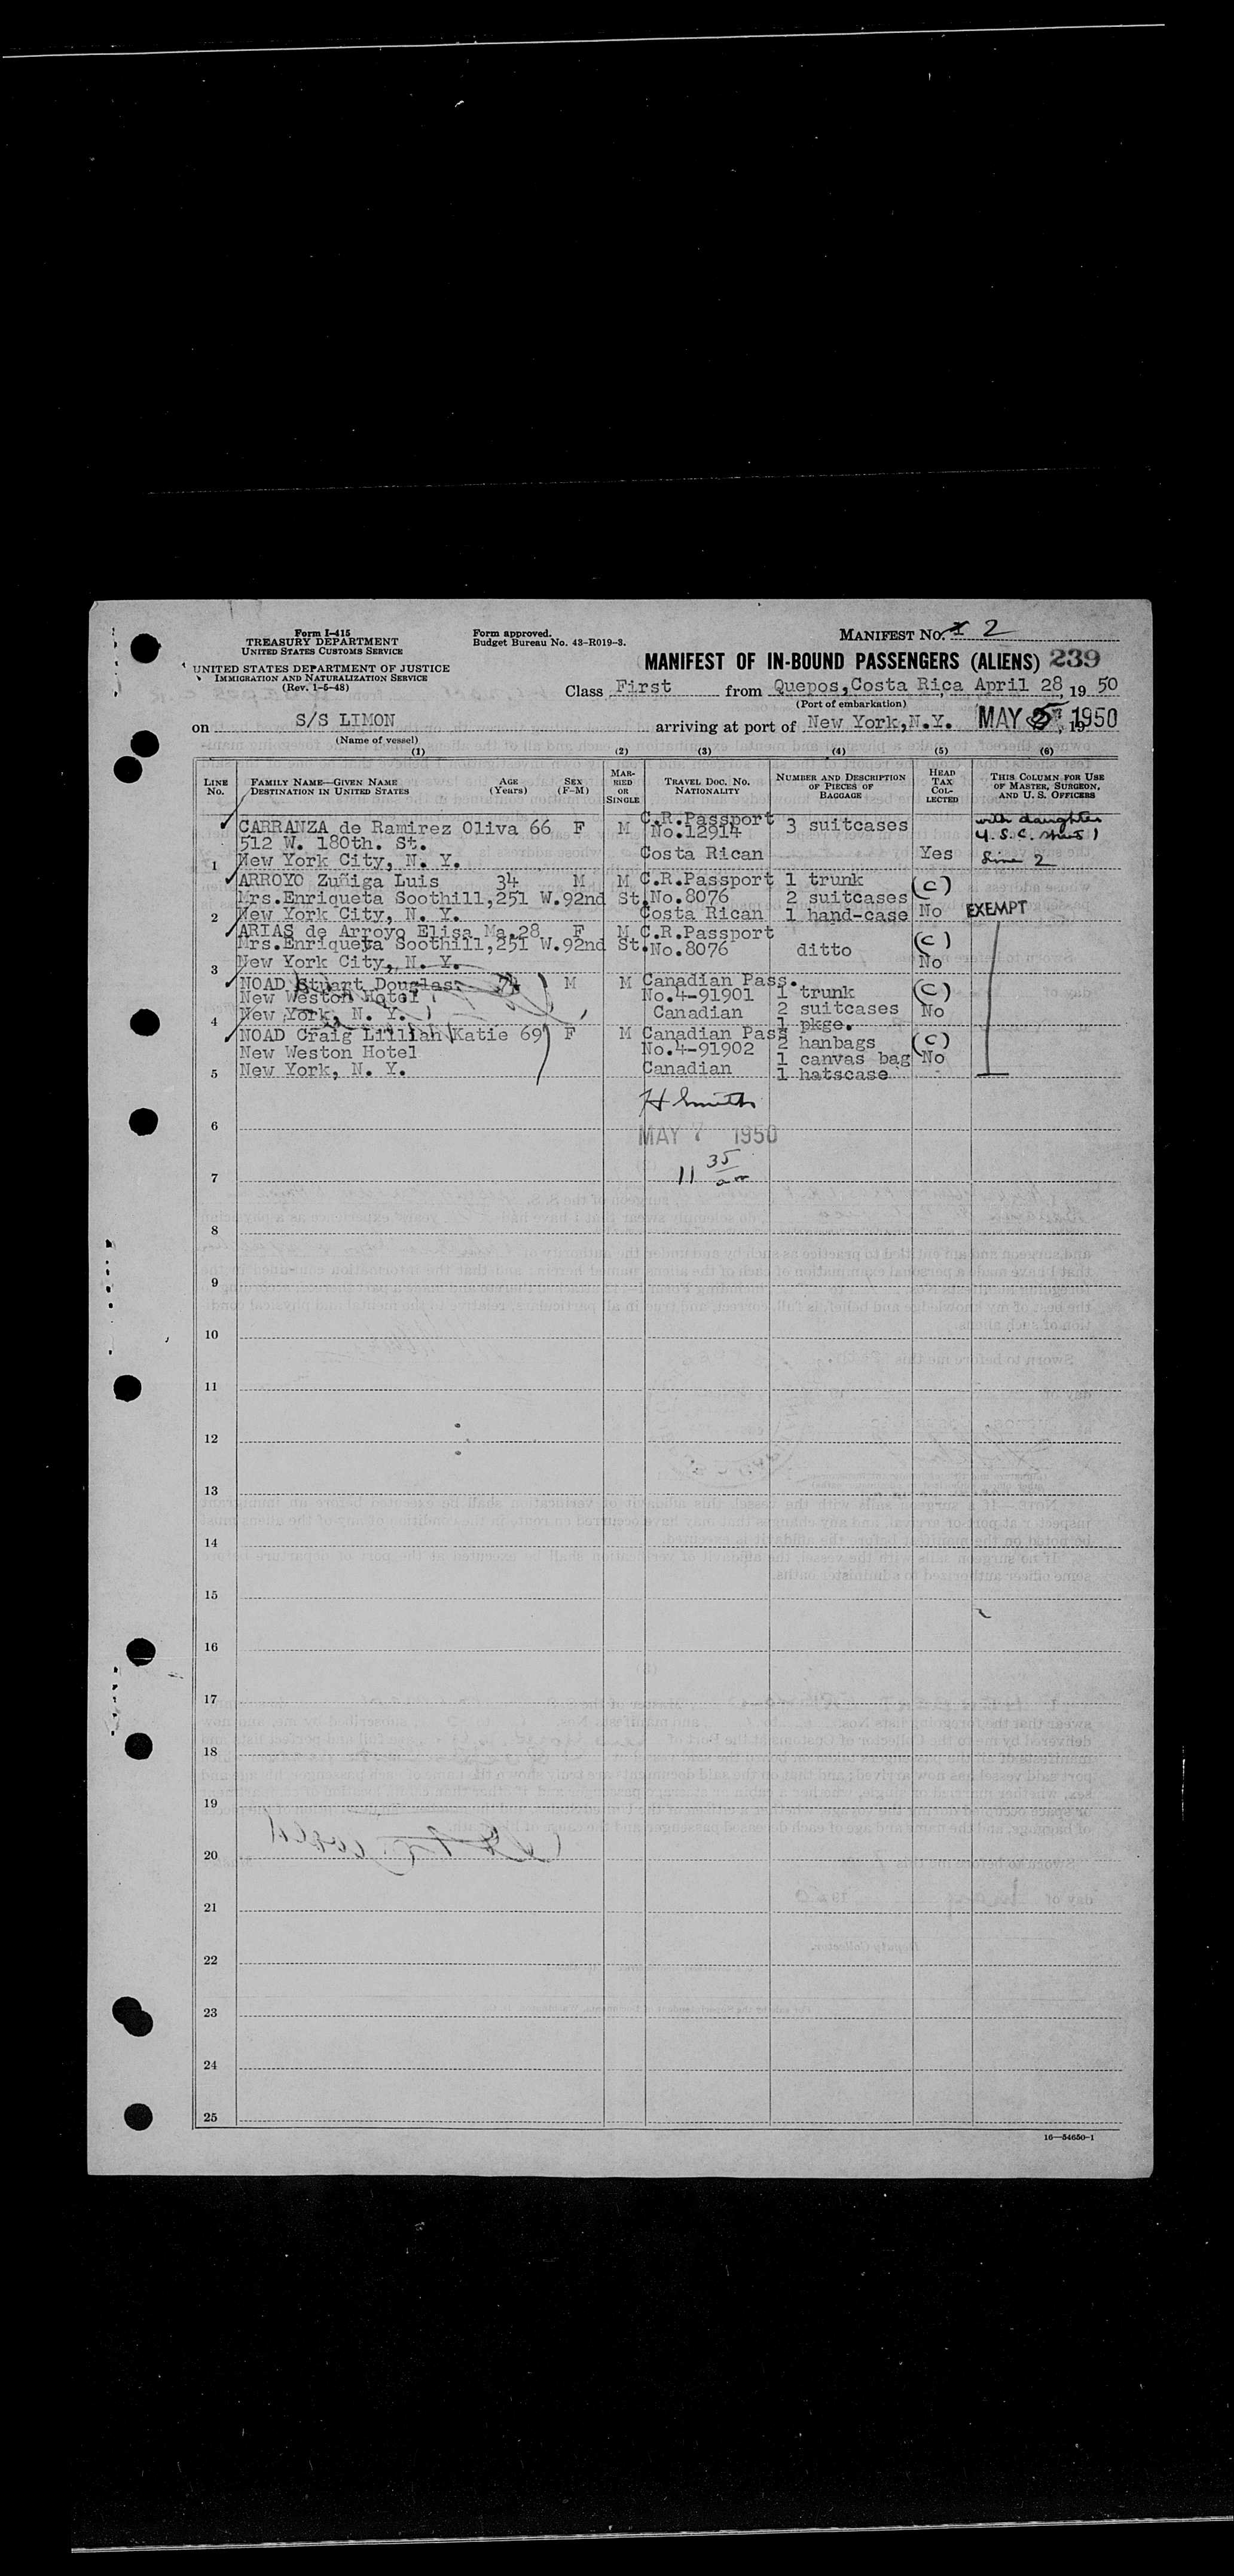 Form I-415
TREASURY DEPARTMENT
UNITED STATES CUSTOMS SERVICE
UNITED STATES DEPARTMENT OF JUSTICE
IMMIGRATION AND NATURALIZATION SERVICE
(Rev. 1-5-48)
Form approved.
Budget Bureau No. 43-R019-3.
MANIFEST NO. 2
MANIFEST OF IN-BOUND PASSENGERS (ALIENS) 239
Class First from Quepos, Costa Rica, April 28, 19 50
(Port of embarkation)
on S/S LIMON arriving at port of New York, N.Y. MAY 1950
(Name of vessel)
(1) (2) (3) (4) (5) (6)
LINE No.
FAMILY NAME—GIVEN NAME
DESTINATION IN UNITED STATES
AGE (Years)
SEX (F-M)
MARRIED OR SINGLE
TRAVEL DOC. NO. NATIONALITY
NUMBER AND DESCRIPTION OF PIECES OF BAGGAGE
HEAD TAX COLLECTED
THIS COLUMN FOR USE OF MASTER, SURGEON, AND U. S. OFFICERS
CARRANZA de Ramirez Oliva 66 F M C.R.Passport 3 suitcases with daughter
512 W. 180th. St. No.12914 U.S.C. sheet 1
1 New York City, N. Y. Costa Rican Yes Line 2
ARROYO Zuñiga Luis 34 M M C.R.Passport 1 trunk (C)
Mrs.Enriqueta Soothill,251 W.92nd St. No.8076 2 suitcases
2 New York City, N. Y. Costa Rican 1 hand-case No EXEMPT
ARIAS de Arroyo Elisa Ma.28 F M C.R.Passport
Mrs.Enriqueta Soothill,251 W.92nd St. No.8076 ditto (C)
3 New York City, N. Y. No
NOAD Stuart Douglas M M Canadian Pass.
New Weston Hotel No.4-91901 1 trunk (C)
4 New York, N. Y. Canadian 2 suitcases No
1 pkge.
NOAD Craig Lillian Katie 69 F M Canadian Pass 2 hanbags (C)
New Weston Hotel No.4-91902 1 canvas bag No
5 New York, N. Y. Canadian 1 hatscase
H Smith
6
MAY 7 1950
11 35 am
7
8
9
10
11
12
13
14
15
16
17
18
19
20
21
22
23
24
25
16—54650-1